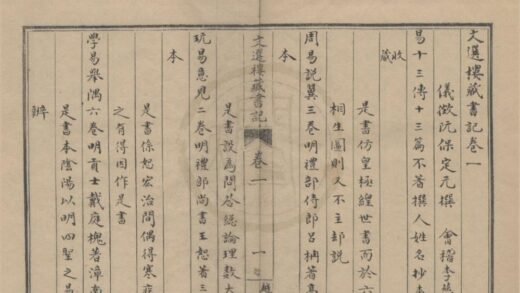 文選樓藏書記卷一
儀徵阮保定元撰　會稽李
易十三傳十三篇不著撰人姓名抄本
收藏
是書仿皇極經世書而於六
桐生圖則又不主邵說
周易說翼三卷明禮部侍郎呂柟著高
本
文選樓藏書記
卷一
一
是書設爲問答總論理數大
玩易意見二卷明禮部尚書王恕著三
本
是書係恕宏治間偶得寒疾
之有得因作是書
學易舉隅六卷明貢士戴庭槐著漳南
是書本陰陽以明四聖之易
辨